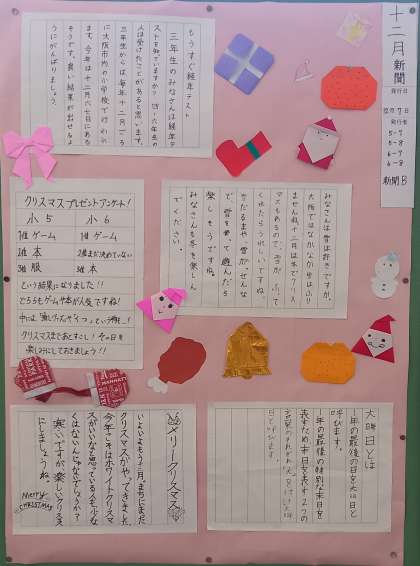 十二月新聞
発行日
12月7日
発行者
5-7
5-8
6-7
6-8
新聞B
もうすぐ経年テスト
三年生のみなさんは経年テ
ストを知っていますか?四~六年生の
人は受けたことがあると思います。
三年生からは毎年十二月ごろ
に大阪市内の小学校で行われ
ます。今年は十二月六七日にある
そうです。良い結果が出せるよ
うにがんばりましょう。
みなさんは雪は好きですか。
大阪ではなかなか雪はふり
ませんね。十二月は冬でクリス
マスもあるので、雪が、ふって
くれたらうれしいですね。
雪だるまや、雪がっせんな
で、雪を使って遊んだら
楽しそうですね。
みなさんも冬を楽しん
でください。
クリスマスプレゼントアンケート!
小5
小6
1位ゲーム
1位ゲーム
2位本
2位まだ決めていない
3位服
3位本
という結果になりました!!
どちらもゲームや本が人気ですね!
クリスマスまであとすこし!今の日を
楽しみにしておきましょう!!
メリークリスマス
いよいよもう十二月。まちにまった
クリスマスがやってきました
今年こそはホワイトクリスマ
スがいいなと思っている人も少な
くはないんじゃないでしょうか?
寒いですが楽しいクリスマス
にしましょうね
MERRY
CHRISTMAS
大晦日とは
1年の最後の日を大晦日と
呼びます。
1年の最後の特別な末日を
表すため末日を表す2つの